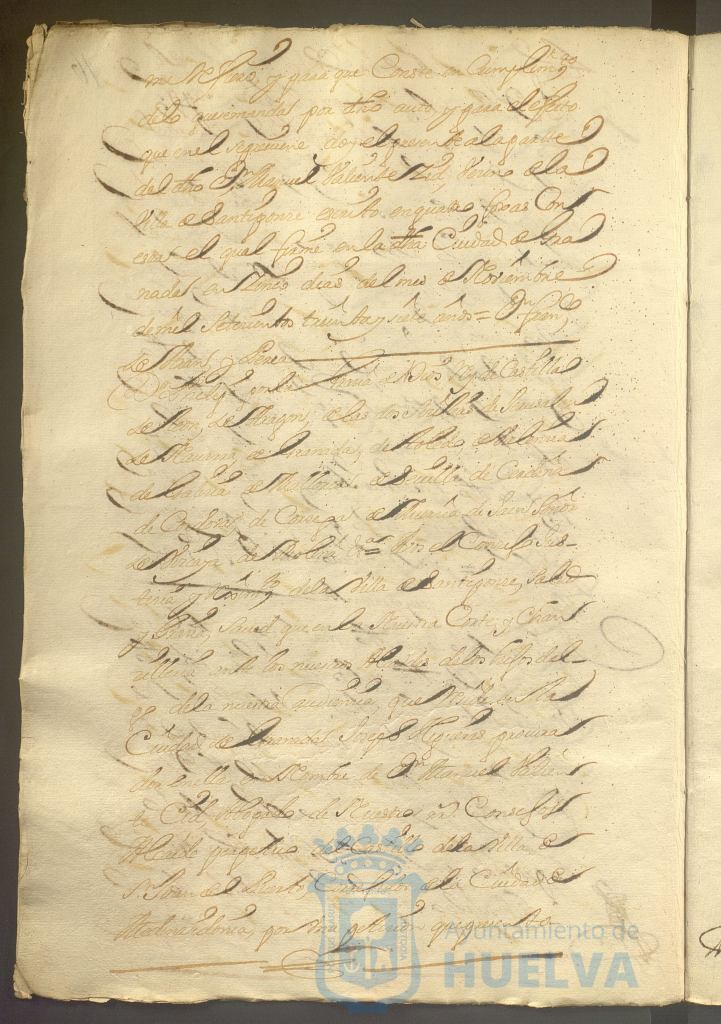 me refiero, y para que Conste en Cumplimto
delo que me manda por dho auto y para el efecto
que en el se previene doy el presente a la parte
del dho Dn Manuel Valiente Zid, Vezino de la
Villa de Santiponze escripto en quatro foxas Con
esta el qual firme en la dha Ciudad de Gra
nada en Zinco dias del mes de Noviembre
de mil Setezientos treinta y siete años = Dn Fran,co
de
Dn Phelipe por la Grazia de Dios Rey de Castilla
de Leon, de Aragon, de las dos Sicilias de Jerusalen
de Navarra, de Granada, de Toledo de Valencia
de Galizia de Mallorca de Sevilla de Cerdeña
de Cordova de Corzega de Murcia de Jaen Señor
de Vizcaya de Molina &a = Vos el Conzejo Jus-
tizia y Reximto de la Villa de Santiponze, Salud
y Grazia, Saved que en la Nuestra Corte, y Chan
zilleria ante los nuestros Alcaldes de los hijos dal-
go de la nuestra audiencia que reside en la
Ciudad de Granada, Joseph procura
dor en ella en Nombre de Dn Manuel Valien
te Cid Abogado de Nuestros rs Consejos
Alcaide perpetuo del Castillo de la Villa de
Sn Juan del Puerto, de la Ciudad de
por una petizion que presento
Ayuntamiento de
HUELVA